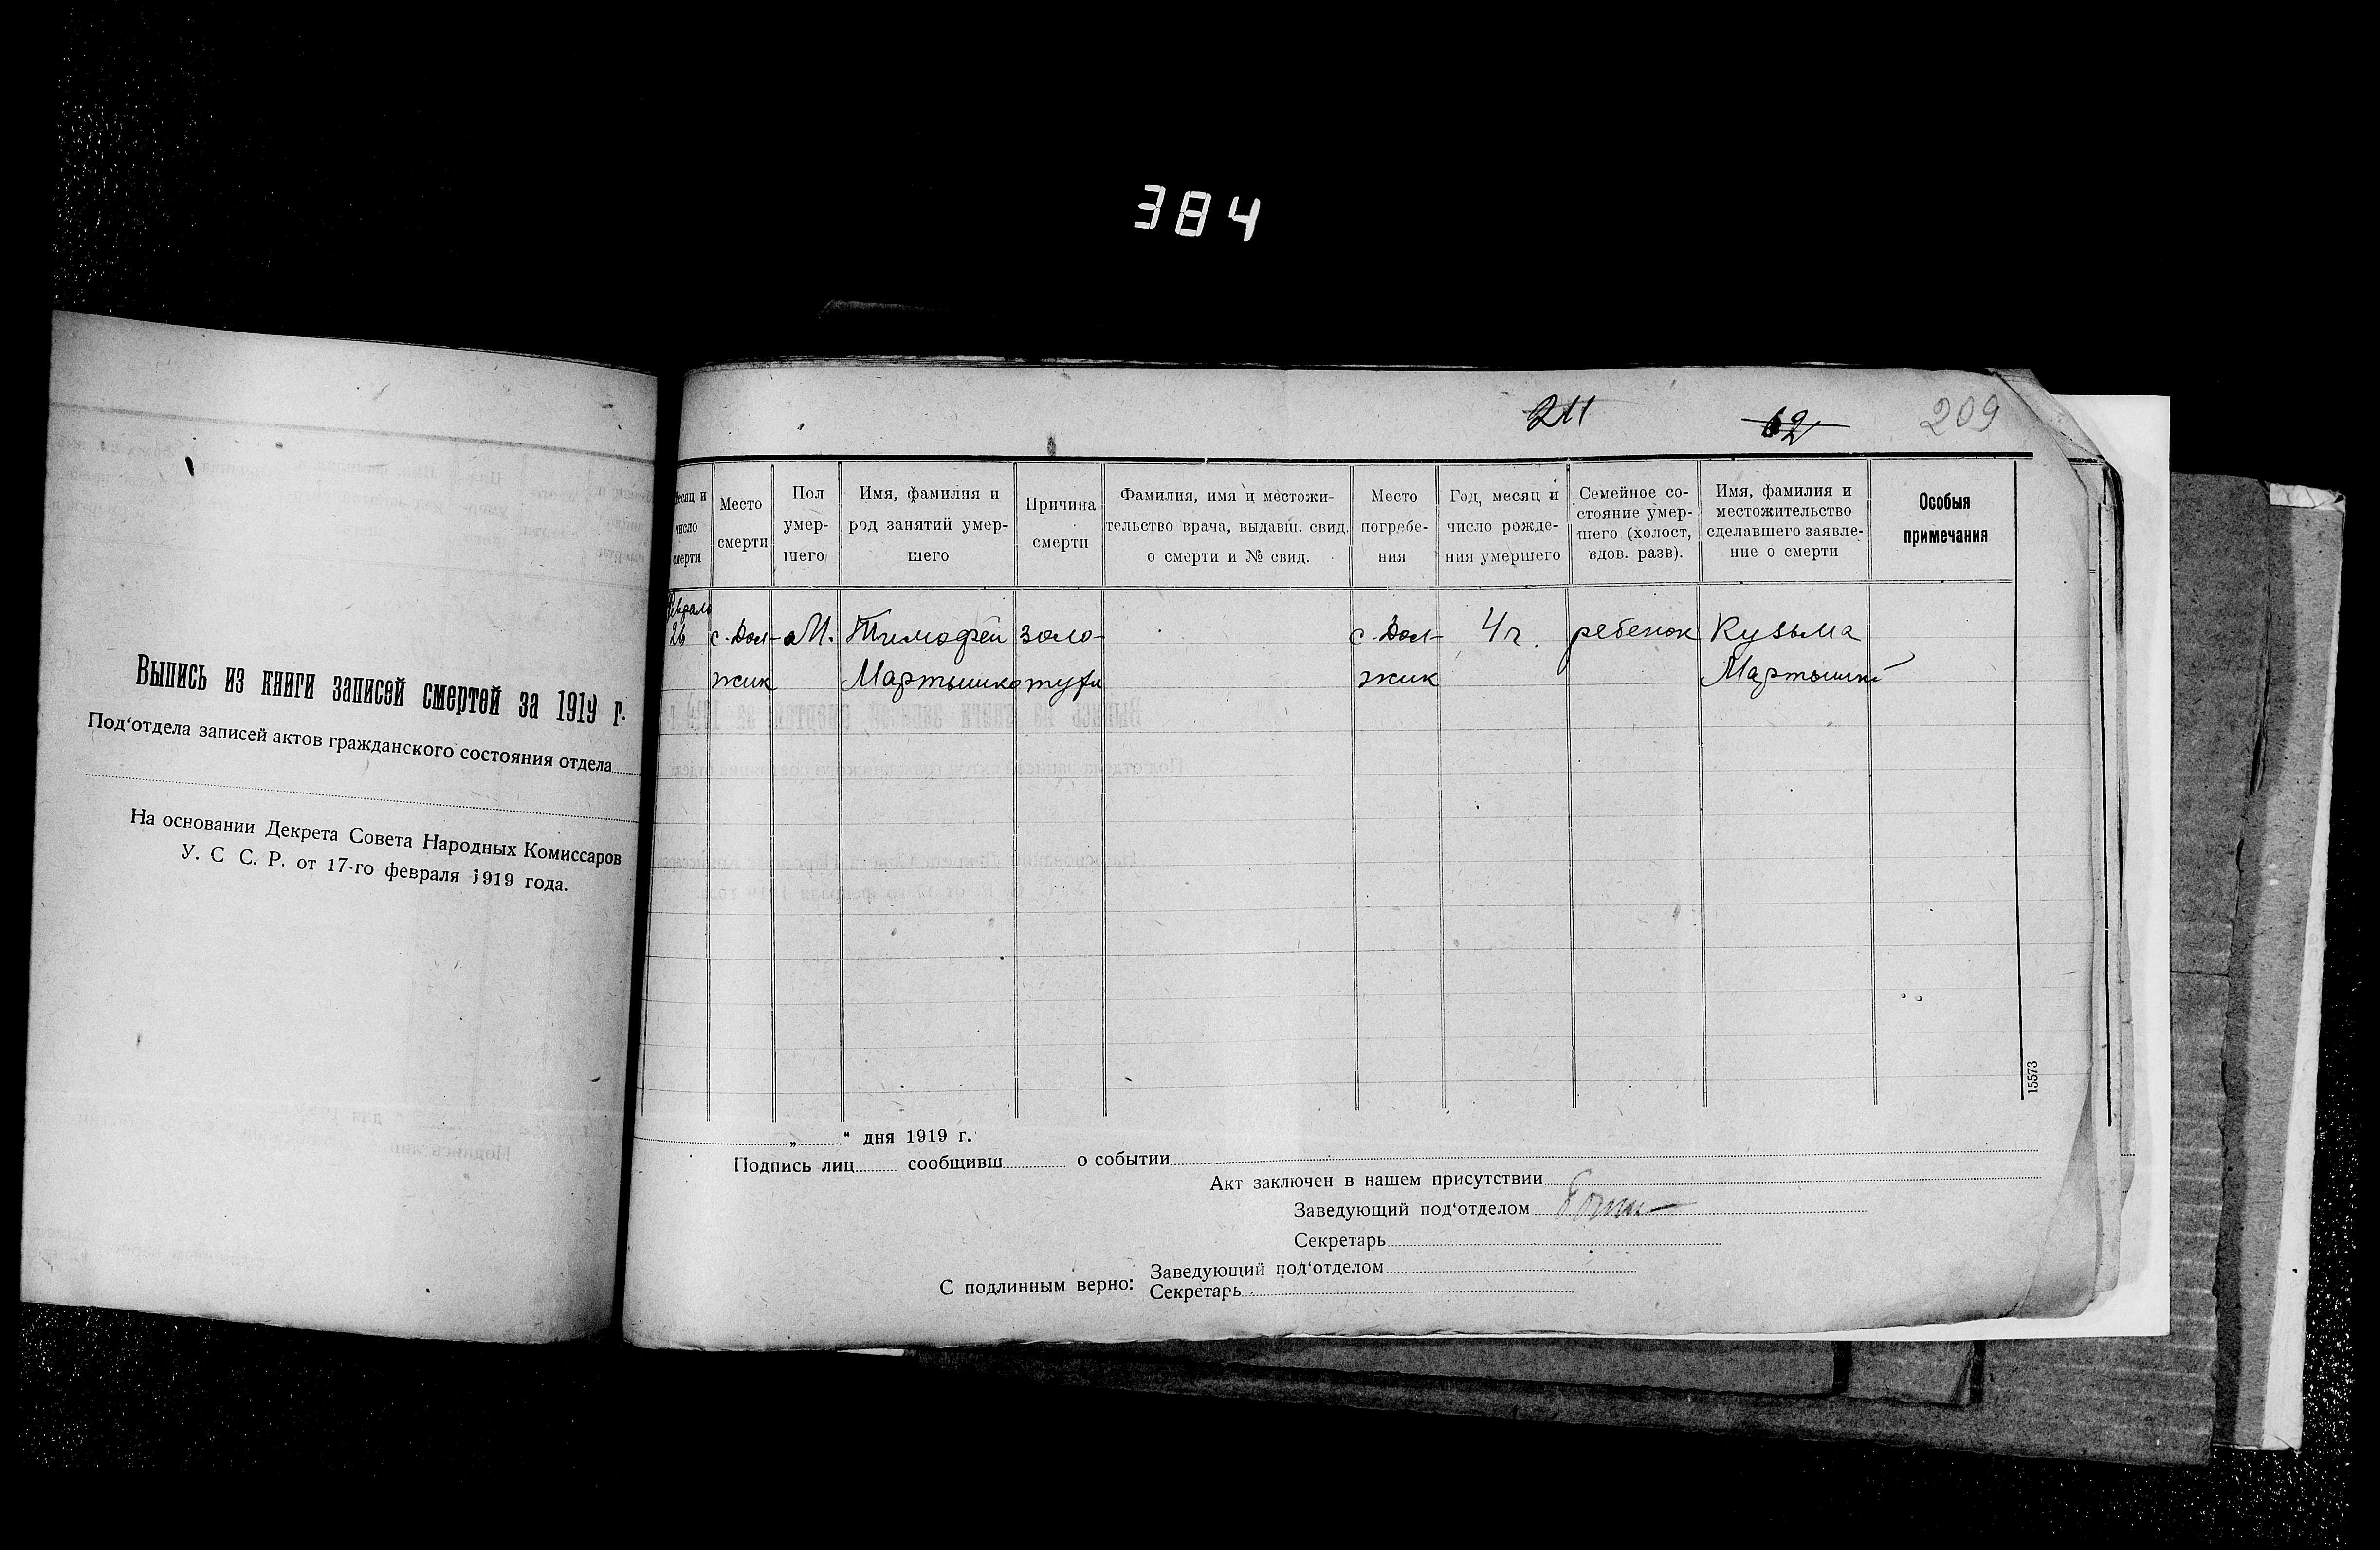 384
Выпись из книги записей смертей за 1919 г.
Под‘отдела записей актов гражданского состояния отдела
На основании Декрета Совета Народных Комиссаров
У. С С. Р. от 17-го февраля 1919 года.
211
62
209
Месяц и число смерти
Место смерти
Пол умер-шего
Имя, фамилия и род занятий умер-шего
Причина смерти
Фамилия, имя и местожи-тельство врача, выдавш. свид. о смерти и № свид.
Место погребе-ния
Год, месяц и число рожде-ния умершего
Семейное со-стояние умер-шего (холост, вдов. разв).
Имя, фамилия и местожительство сделавшего заявле-ние о смерти
Особыя примечания
Февраль
26 с. Дол- М. Тимофей золо- с. Дол- 4 г. ребенок Кузьма
жик Мартышко туха жик Мартышко
15573
„ “ дня 1919 г.
Подпись лиц сообщивш о событии
Акт заключен в нашем присутствии
Заведующий под‘отделом
Секретарь
С подлинным верно: Заведующий под‘отделом
Секретарь